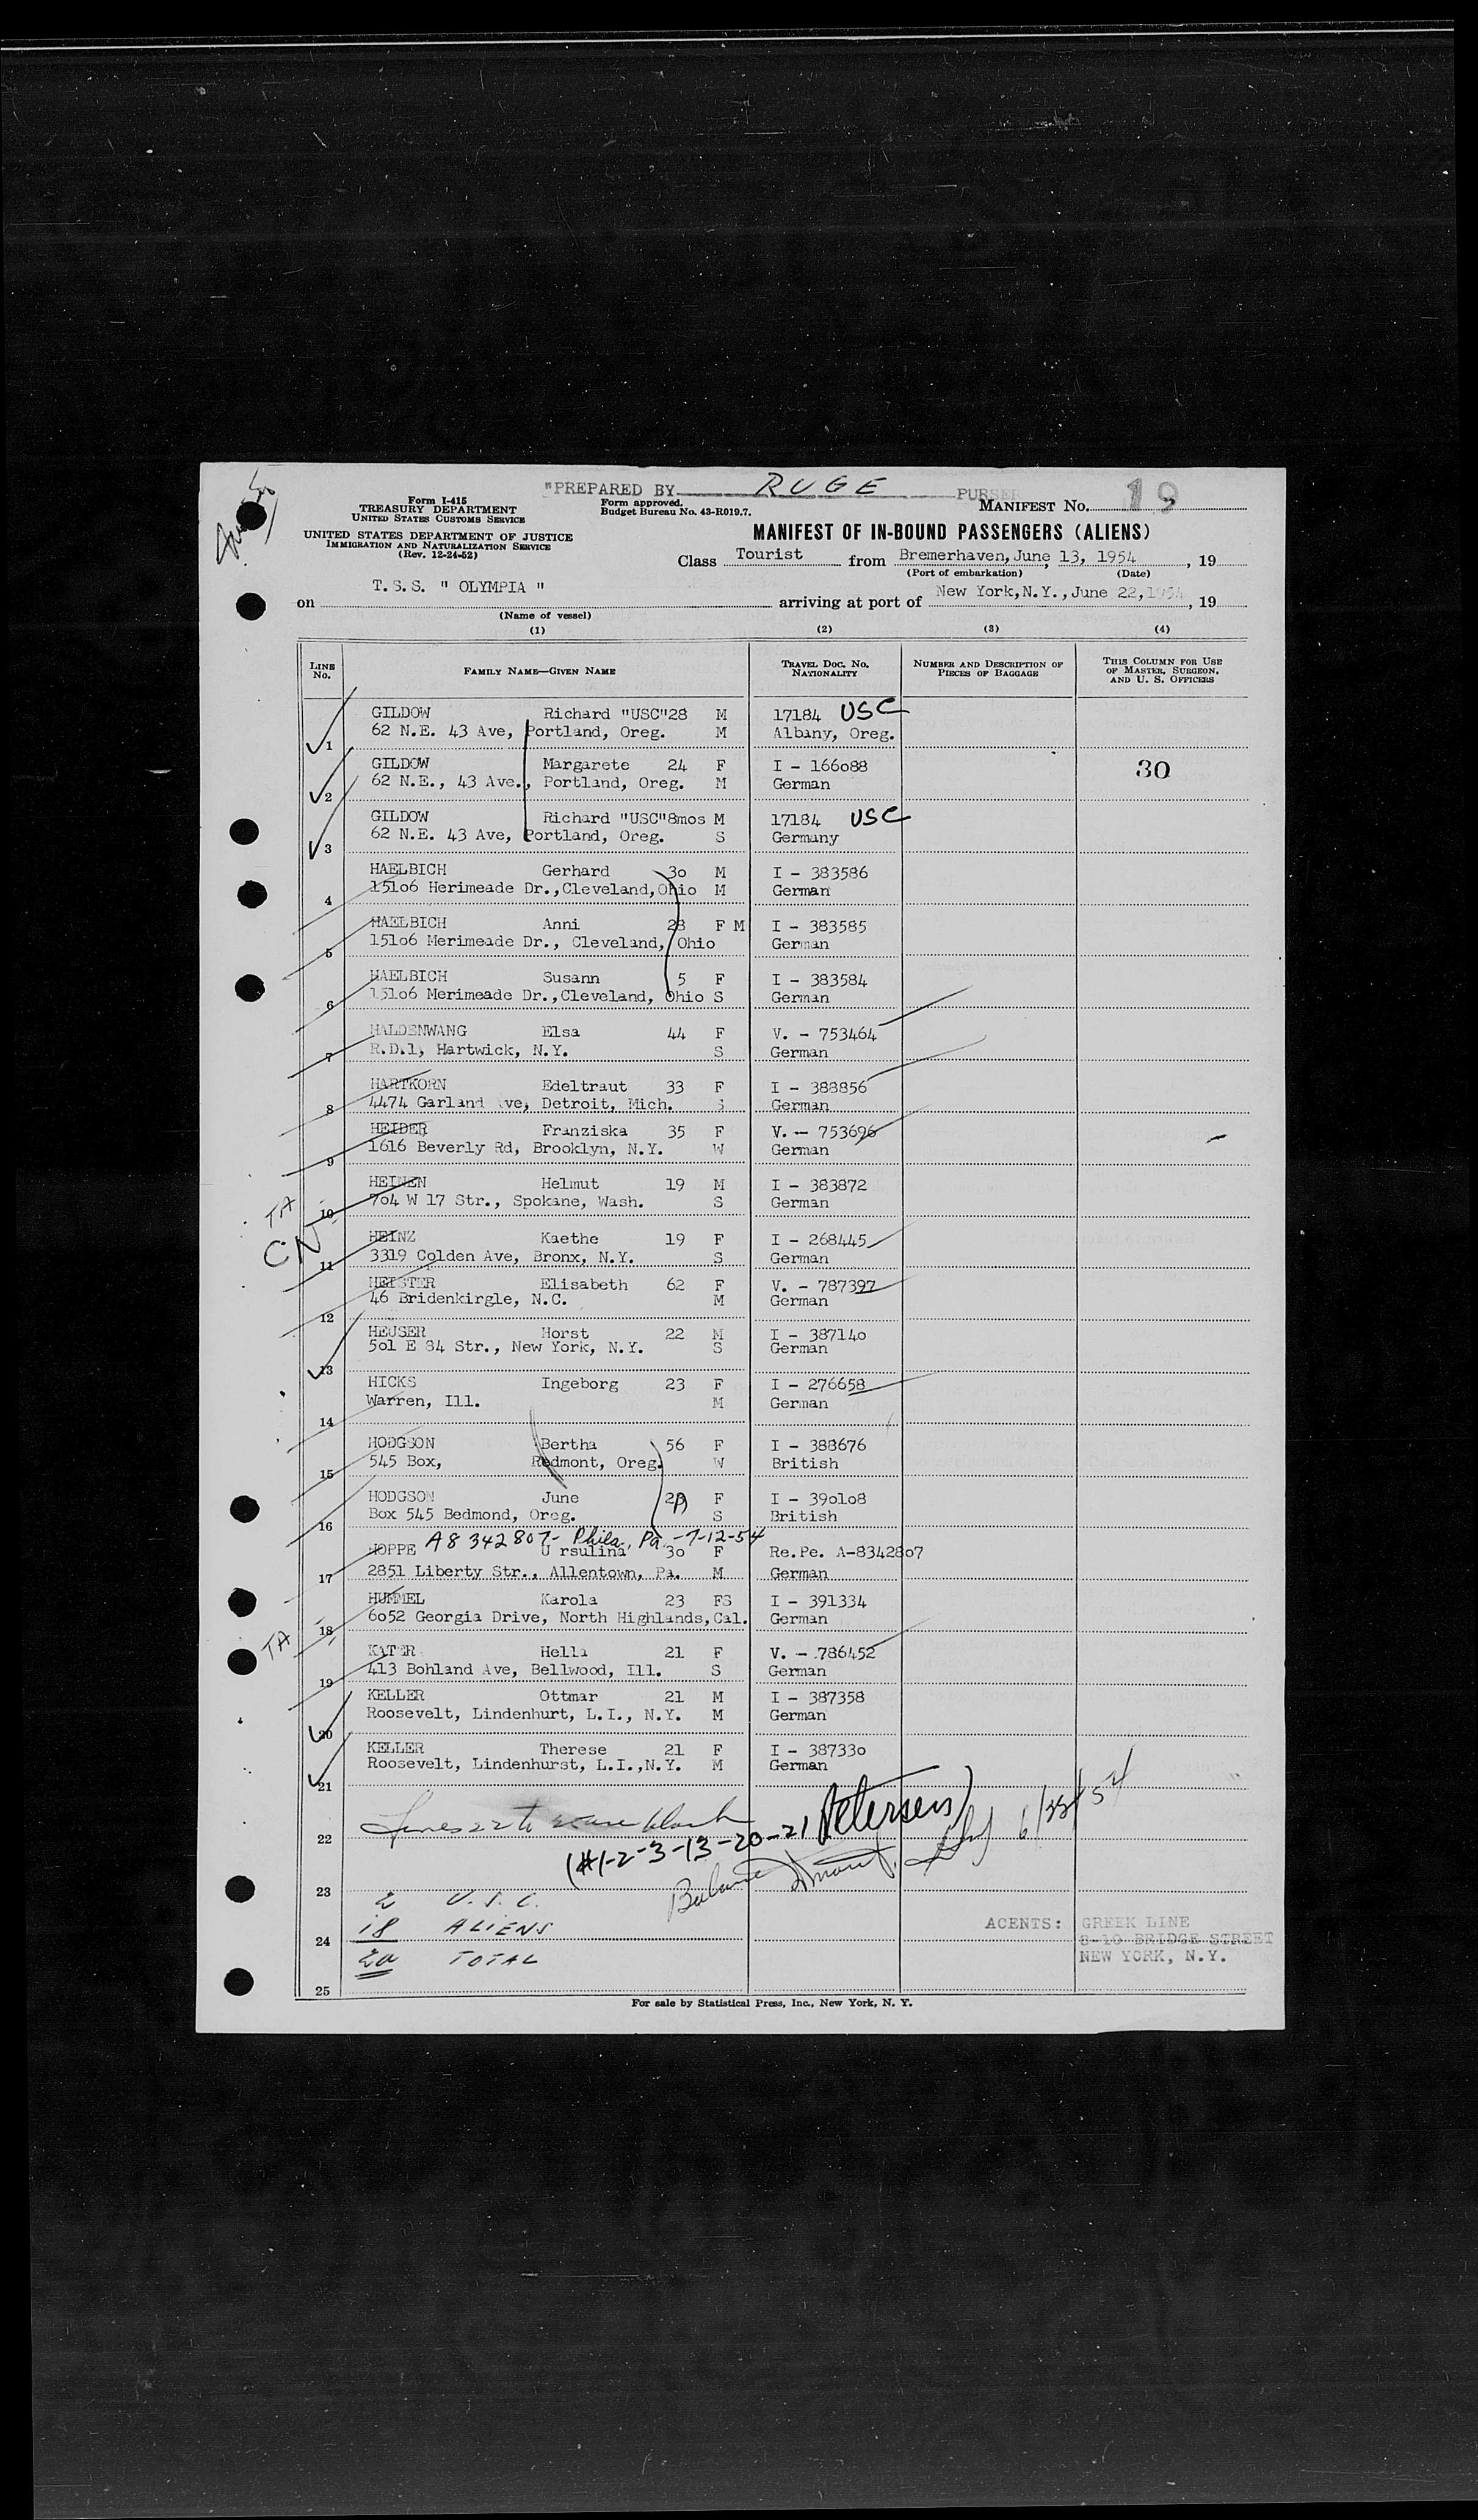 "PREPARED BY RUGE PURSER
Form I-415
TREASURY DEPARTMENT
UNITED STATES CUSTOMS SERVICE
Form approved.
Budget Bureau No. 43-R019.7.
MANIFEST No. 19
UNITED STATES DEPARTMENT OF JUSTICE
IMMIGRATION AND NATURALIZATION SERVICE
(Rev. 12-24-52)
MANIFEST OF IN-BOUND PASSENGERS (ALIENS)
Class Tourist from Bremerhaven, June 13, 1954, 19
(Port of embarkation) (Date)
T.S.S. " OLYMPIA "
on arriving at port of New York,N.Y.,June 22,1954, 19
(Name of vessel)
(1) (2) (3) (4)
LINE No. FAMILY NAME—GIVEN NAME TRAVEL DOC. NO. NATIONALITY NUMBER AND DESCRIPTION OF PIECES OF BAGGAGE THIS COLUMN FOR USE OF MASTER, SURGEON, AND U. S. OFFICERS
GILDOW Richard "USC"28 M 17184 USC
1 62 N.E. 43 Ave, Portland, Oreg. M Albany, Oreg.
GILDOW Margarete 24 F I - 166o88 30
2 62 N.E., 43 Ave., Portland, Oreg. M German
GILDOW Richard "USC"8mos M 17184 USC
3 62 N.E. 43 Ave, Portland, Oreg. S Germany
HAELBICH Gerhard 3o M I - 383586
4 151o6 Herimeade Dr.,Cleveland,Ohio M German
HAELBICH Anni 28 F M I - 383585
5 151o6 Merimeade Dr., Cleveland, Ohio German
HAELBICH Susann 5 F I - 383584
6 151o6 Merimeade Dr.,Cleveland, Ohio S German
HALDENWANG Elsa 44 F V. - 753464
7 R.D.1, Hartwick, N.Y. S German
HARTKORN Edeltraut 33 F I - 388856
8 4474 Garland Ave, Detroit, Mich. S German
HEIDER Franziska 35 F V. - 753696
9 1616 Beverly Rd, Brooklyn, N.Y. W German
TA
HEINEN Helmut 19 M I - 383872
10 7o4 W 17 Str., Spokane, Wash. S German
CN
HEINZ Kaethe 19 F I - 268445
11 3319 Colden Ave, Bronx, N.Y. S German
HEISTER Elisabeth 62 F V. - 787397
12 46 Bridenkirgle, N.C. M German
HEUSER Horst 22 M I - 38714o
13 5o1 E 84 Str., New York, N.Y. S German
HICKS Ingeborg 23 F I - 276658
14 Warren, Ill. M German
HODGSON Bertha 56 F I - 388676
15 545 Box, Redmont, Oreg. W British
HODGSON June F I - 39o1o8
16 Box 545 Bedmond, Oreg. S British
A8 342 807- Phila, Pa. -7-12-54
HOPPE U rsulina 3o F Re.Pe. A-83428o7
17 2851 Liberty Str., Allentown, Pa. M German
HUMMEL Karola 23 FS I - 391334
18 6o52 Georgia Drive, North Highlands,Cal. German
TA
KATER Hella 21 F V. - 786452
19 413 Bohland Ave, Bellwood, Ill. S German
KELLER Ottmar 21 M I - 387358
20 Roosevelt, Lindenhurt, L.I., N.Y. M German
KELLER Therese 21 F I - 38733o
21 Roosevelt, Lindenhurst, L.I.,N.Y. M German
22 Lines 22 to 25 are blank
(#1-2-3-13-20-21 Petersens)
Balance 6/22/54
23 2 U.S.C.
24 18 ALIENS
20 TOTAL
25
AGENTS: GREEK LINE
8-10 BRIDGE STREET
NEW YORK, N.Y.
For sale by Statistical Press, Inc., New York, N. Y.